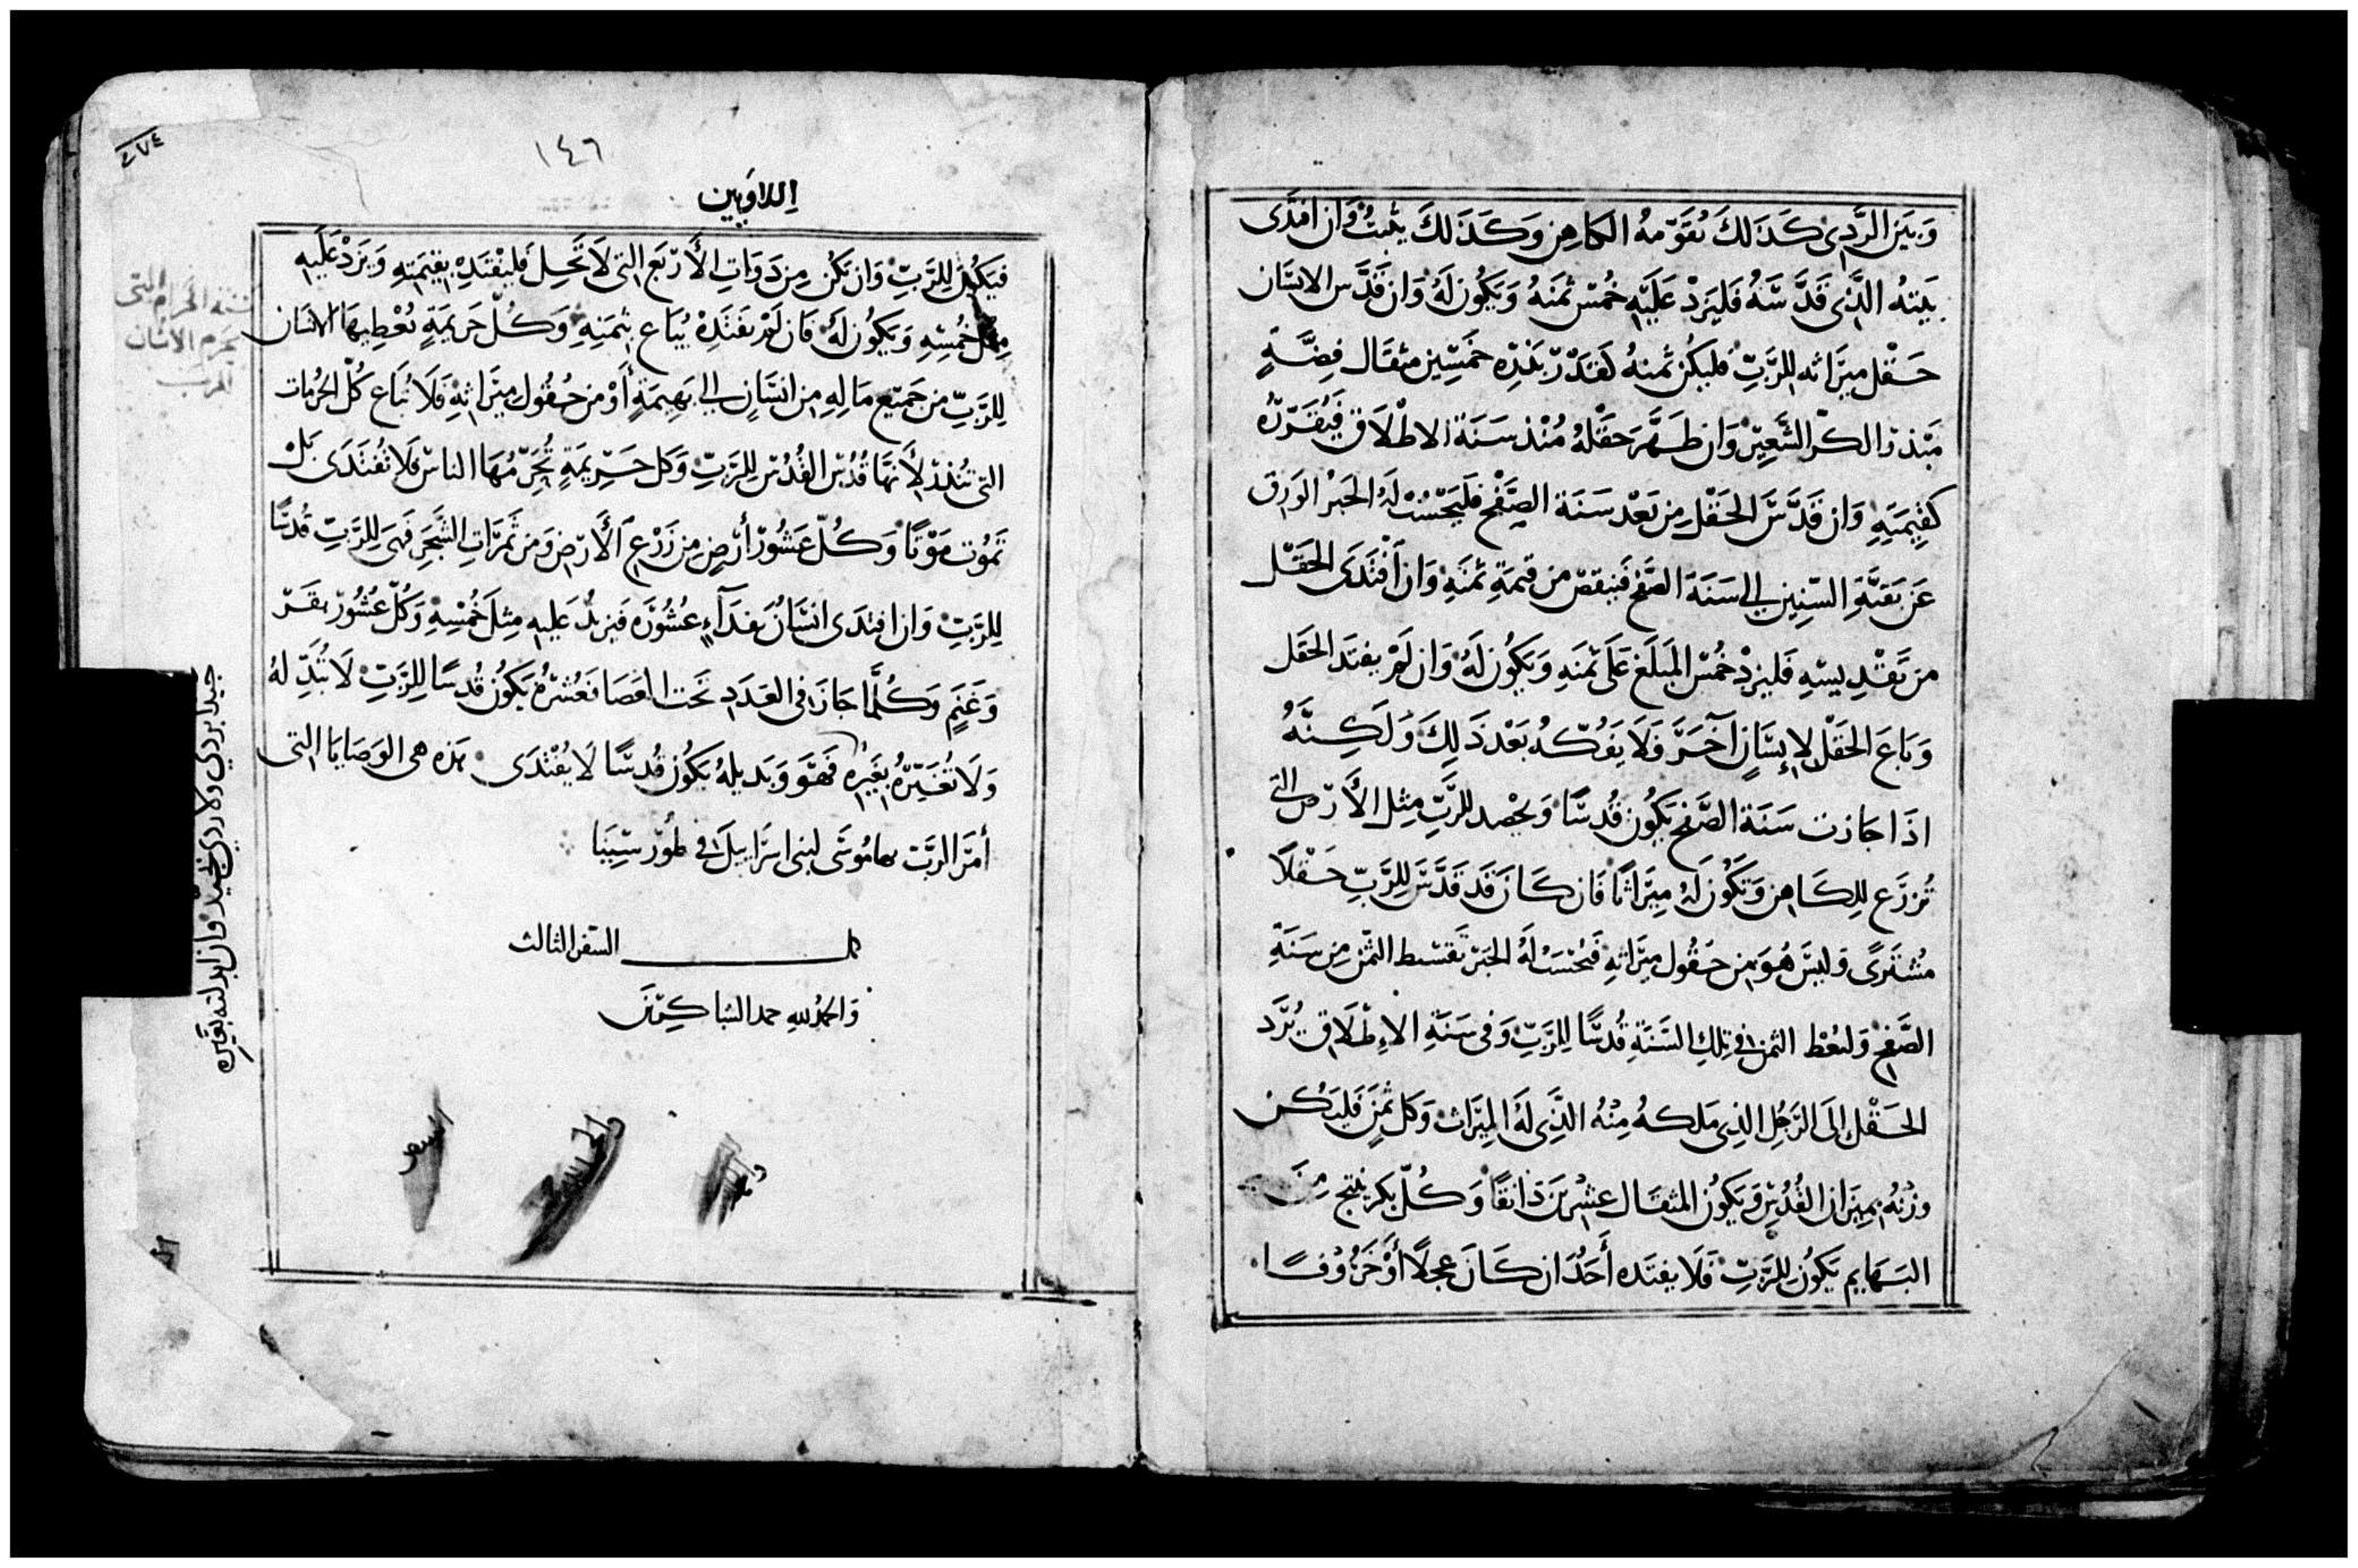 وَبَيْنَ الرَّدِي كَذَلكَ يُقَوّمهُ الكاهِن وَكَذَلكَ يثبتُ وَان افتدَى
بَيتهُ الَّذِى قَدَّسَهُ فَليَزِدْ عَلَيْهِ خُمسْ ثمَنَهُ وَيَكُون لَهُ وَان قَدَّس الانسَان
حَقْل ميرَاثه للرَّبِّ فليَكُن ثمنهُ كقَدْر بَذرِه خمَسِين مثقَال فِضَّةٍ
مَبْذر الكرّ الشَّعِيرْ وَان طَهَّرَ حَقْلهُ مُنْذ سَنَة الاطْلَاق فَيُقَرّرهُ
كَقِيمَتِهِ وَان قَدَّسَ الحَقْل مِن بَعْد سَنَة الصَّفْح فَليَحْسُبْ لَهُ الحَبرْ الوَرِق
عَن بَقيَّةِ السّنِين الى سَنَة الصَّفح فَينقصْ من قيمَةِ ثمَنَهِ وَان اَفْتَدَى الحَقْل
مَن يَقْدِيسهِ فَليزدْ خُمْسَ المَبلَغ عَلَى ثمنَهِ وَيَكُون لَهُ وَان لَمْ يفتَد الحَقَل
وَبَاعَ الحَقْل لاِنسَانٍ آخَرَ فَلَا يَفُكّهُ بَعْد ذَلِكَ وَلَكِنَّهُ
اذَا جَازت سَنَة الصَّفح يَكُون قُدسًا وَيحْصد للرَّبِّ مِثل الأَرْض التى
تُزرَع للِكَاهِن وَتَكُون لَهُ مِيرَاثًا فَان كَانَ قَد قَدَّسَ للِرَّبِّ حَقْلًا
مُشتَرَى وَليسَ هُوَ مِن حقُول ميرَاثهِ فيُحْسَبْ لهُ الحَبْر تَقسْط الثمَن مِن سَنَةِ
الصَّفحْ وَليُعْط الثمن فى تِلكَ السَّنَةِ قُدسًا لِلرَّبِّ وَفى سَنَةِ الاِطْلَاق يُرَدّ
الحَقْل الَى الرَّجُلِ الذِى مَلكهُ مِنْهُ الَّذِى لَهُ المِيرَاث وَكل ثمَنٍ فَليَكُن
وزْنهُ بميزَان القُدْسِ وَيَكونُ المثقَال عشْرِينَ دَانقًا وَكُلّ بكرٍ ينتج مِنَ
البَهَايِم يَكُونُ لِلرَّبِّ فَلَا يفتَده أَحَدٌ ان كَانَ عجلًا أوْ خَرُوفًا
١٤٦
اللاوَيين
فيَكُونُ للِرَّبِّ وَان يَكُن مِن ذَوَاتِ الأَرْبَع التى لَا تَحِل فَليَفْتَدِهْ بقِيمَتِهِ وَيَزدْ عَلَيهِ
مِثل خُمْسِهِ وَيَكُون لَهُ فَان لَمْ يفتَدِهْ يُبَاع بثمَنِهِ وَكُلّ حَرِيمَةٍ يُعْطِيهَا الانسَان
للِرَّبِّ من جَمِيع مَا لِهِ من انسَانٍ الى بَهِيمَةٍ أَوْ من حُقُول ميرَاثهِ فَلَا تُبَاع كُلّ الحُرُمات
التى تُنذرْ لأَنهَا قُدْسُ القُدْسِ للِرَّبِّ وَكل حَرِيمَةٍ يُحَرّمُهَا الناسْ فَلَا تُفتَدَى بَلْ
تَمُوت مَوْتًا وَكُلّ عَشُورْ أَرْضٍ من زَرْعِ الأَرْضِ وَمن ثَمَرَاتِ الشَّجَرِ فَهىَ لِلرَّبِّ قُدسًا
لِلرَّبِّ وَان افتدَى انسَانُ بفدَآءٍ عشُورَه فَيزيدُ عَليهِ مِثلَ خُمْسِهِ وَكُلّ عُشُورْ بقَر
وَغَنَمٍ وَكُلَّمَا جَازَ فى العَدَدِ تَحتَ العَصَا فَعُشرُهُ يَكُون قُدسًا لِلرَّبِّ لَا تُبَدِّلهُ
وَلَا تُغَيِّرُهُ بغَيْرِهِ فَهوَ وَبَديلهُ يَكُون قُدسًا لَا يُفْتَدَى هَذه هى الوَصَايَا التى
أَمَرَ الرَّبّ بهَا مُوسَى لبنى اسرَايِيلَ فى طُورْ سِينَا
كمل السّفر الثالث
وَالحَمْدُ للهِ حمد الشاكِرِينَ
نسخة الحرام التى
يحرم الانسان
للرب
جيدا بردي ولا ردي بجيد وان ابدلته بغيره